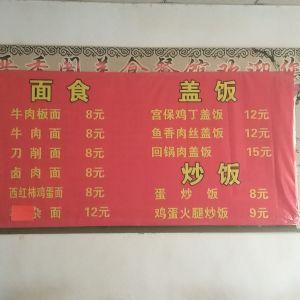 晋香阁美食餐馆欢迎您
面食
牛肉板面 8元
牛肉面 8元
刀削面 8元
卤肉面 8元
西红柿鸡蛋面 8元
面 12元
盖饭
宫保鸡丁盖饭 12元
鱼香肉丝盖饭 12元
回锅肉盖饭 15元
炒饭
蛋炒饭 8元
鸡蛋火腿炒饭 9元